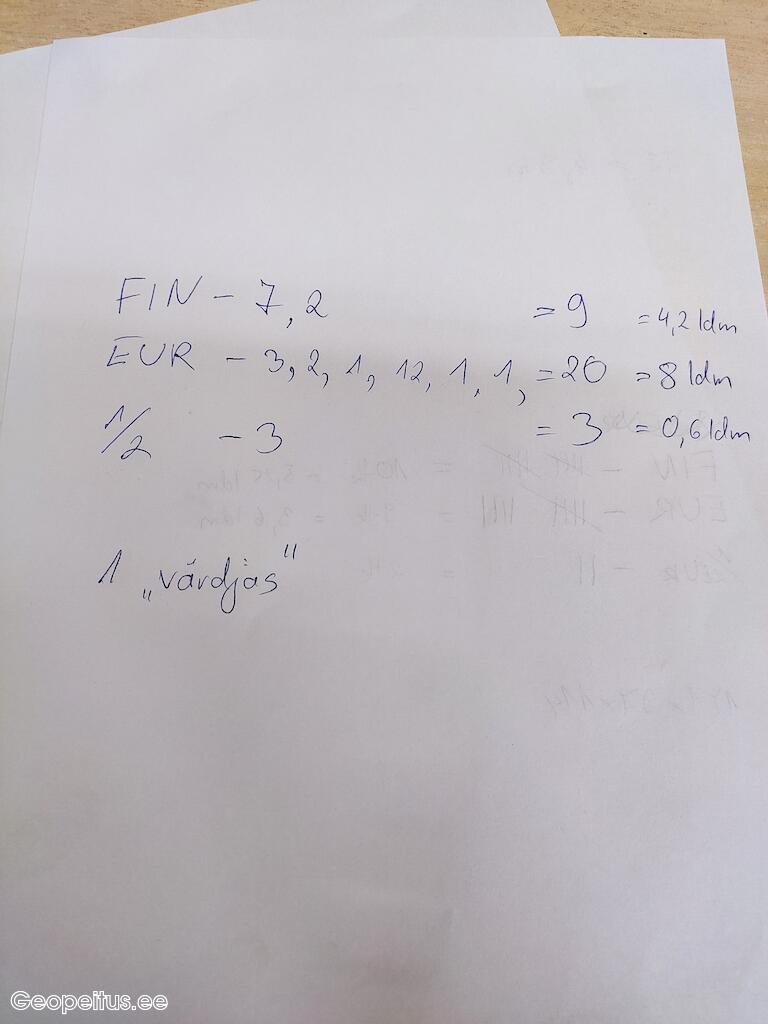 FIN - 7, 2 = 9 = 4,2 ldm
EUR - 3, 2, 1, 12, 1, 1, = 20 = 8 ldm
1/2 - 3 = 3 = 0,6 ldm
1 „värdjas"
Geopeitus.ee